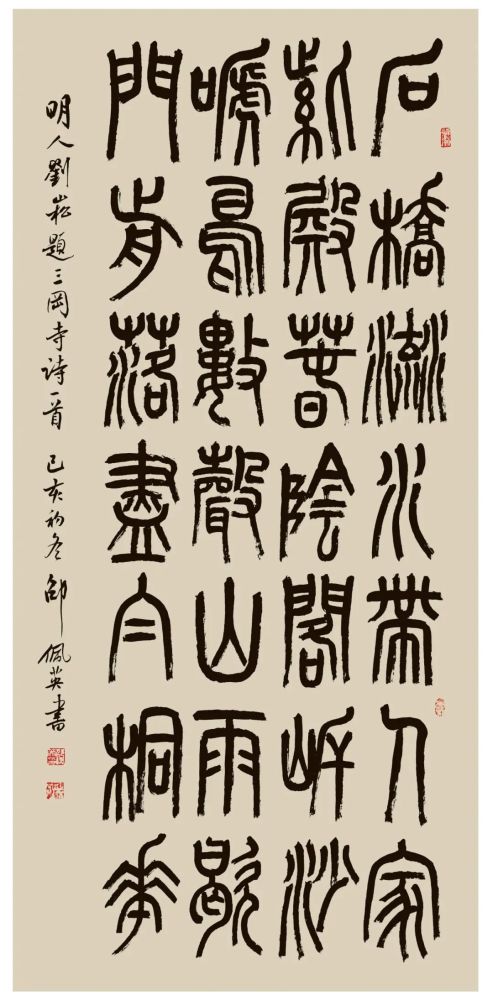 石橋流水帶人家
紫殿春陰閣岸沙
嗁鳥數聲山雨歇
門前落盡桐花
明人劉崧題三岡寺詩一首 己亥初冬 邵佩英書